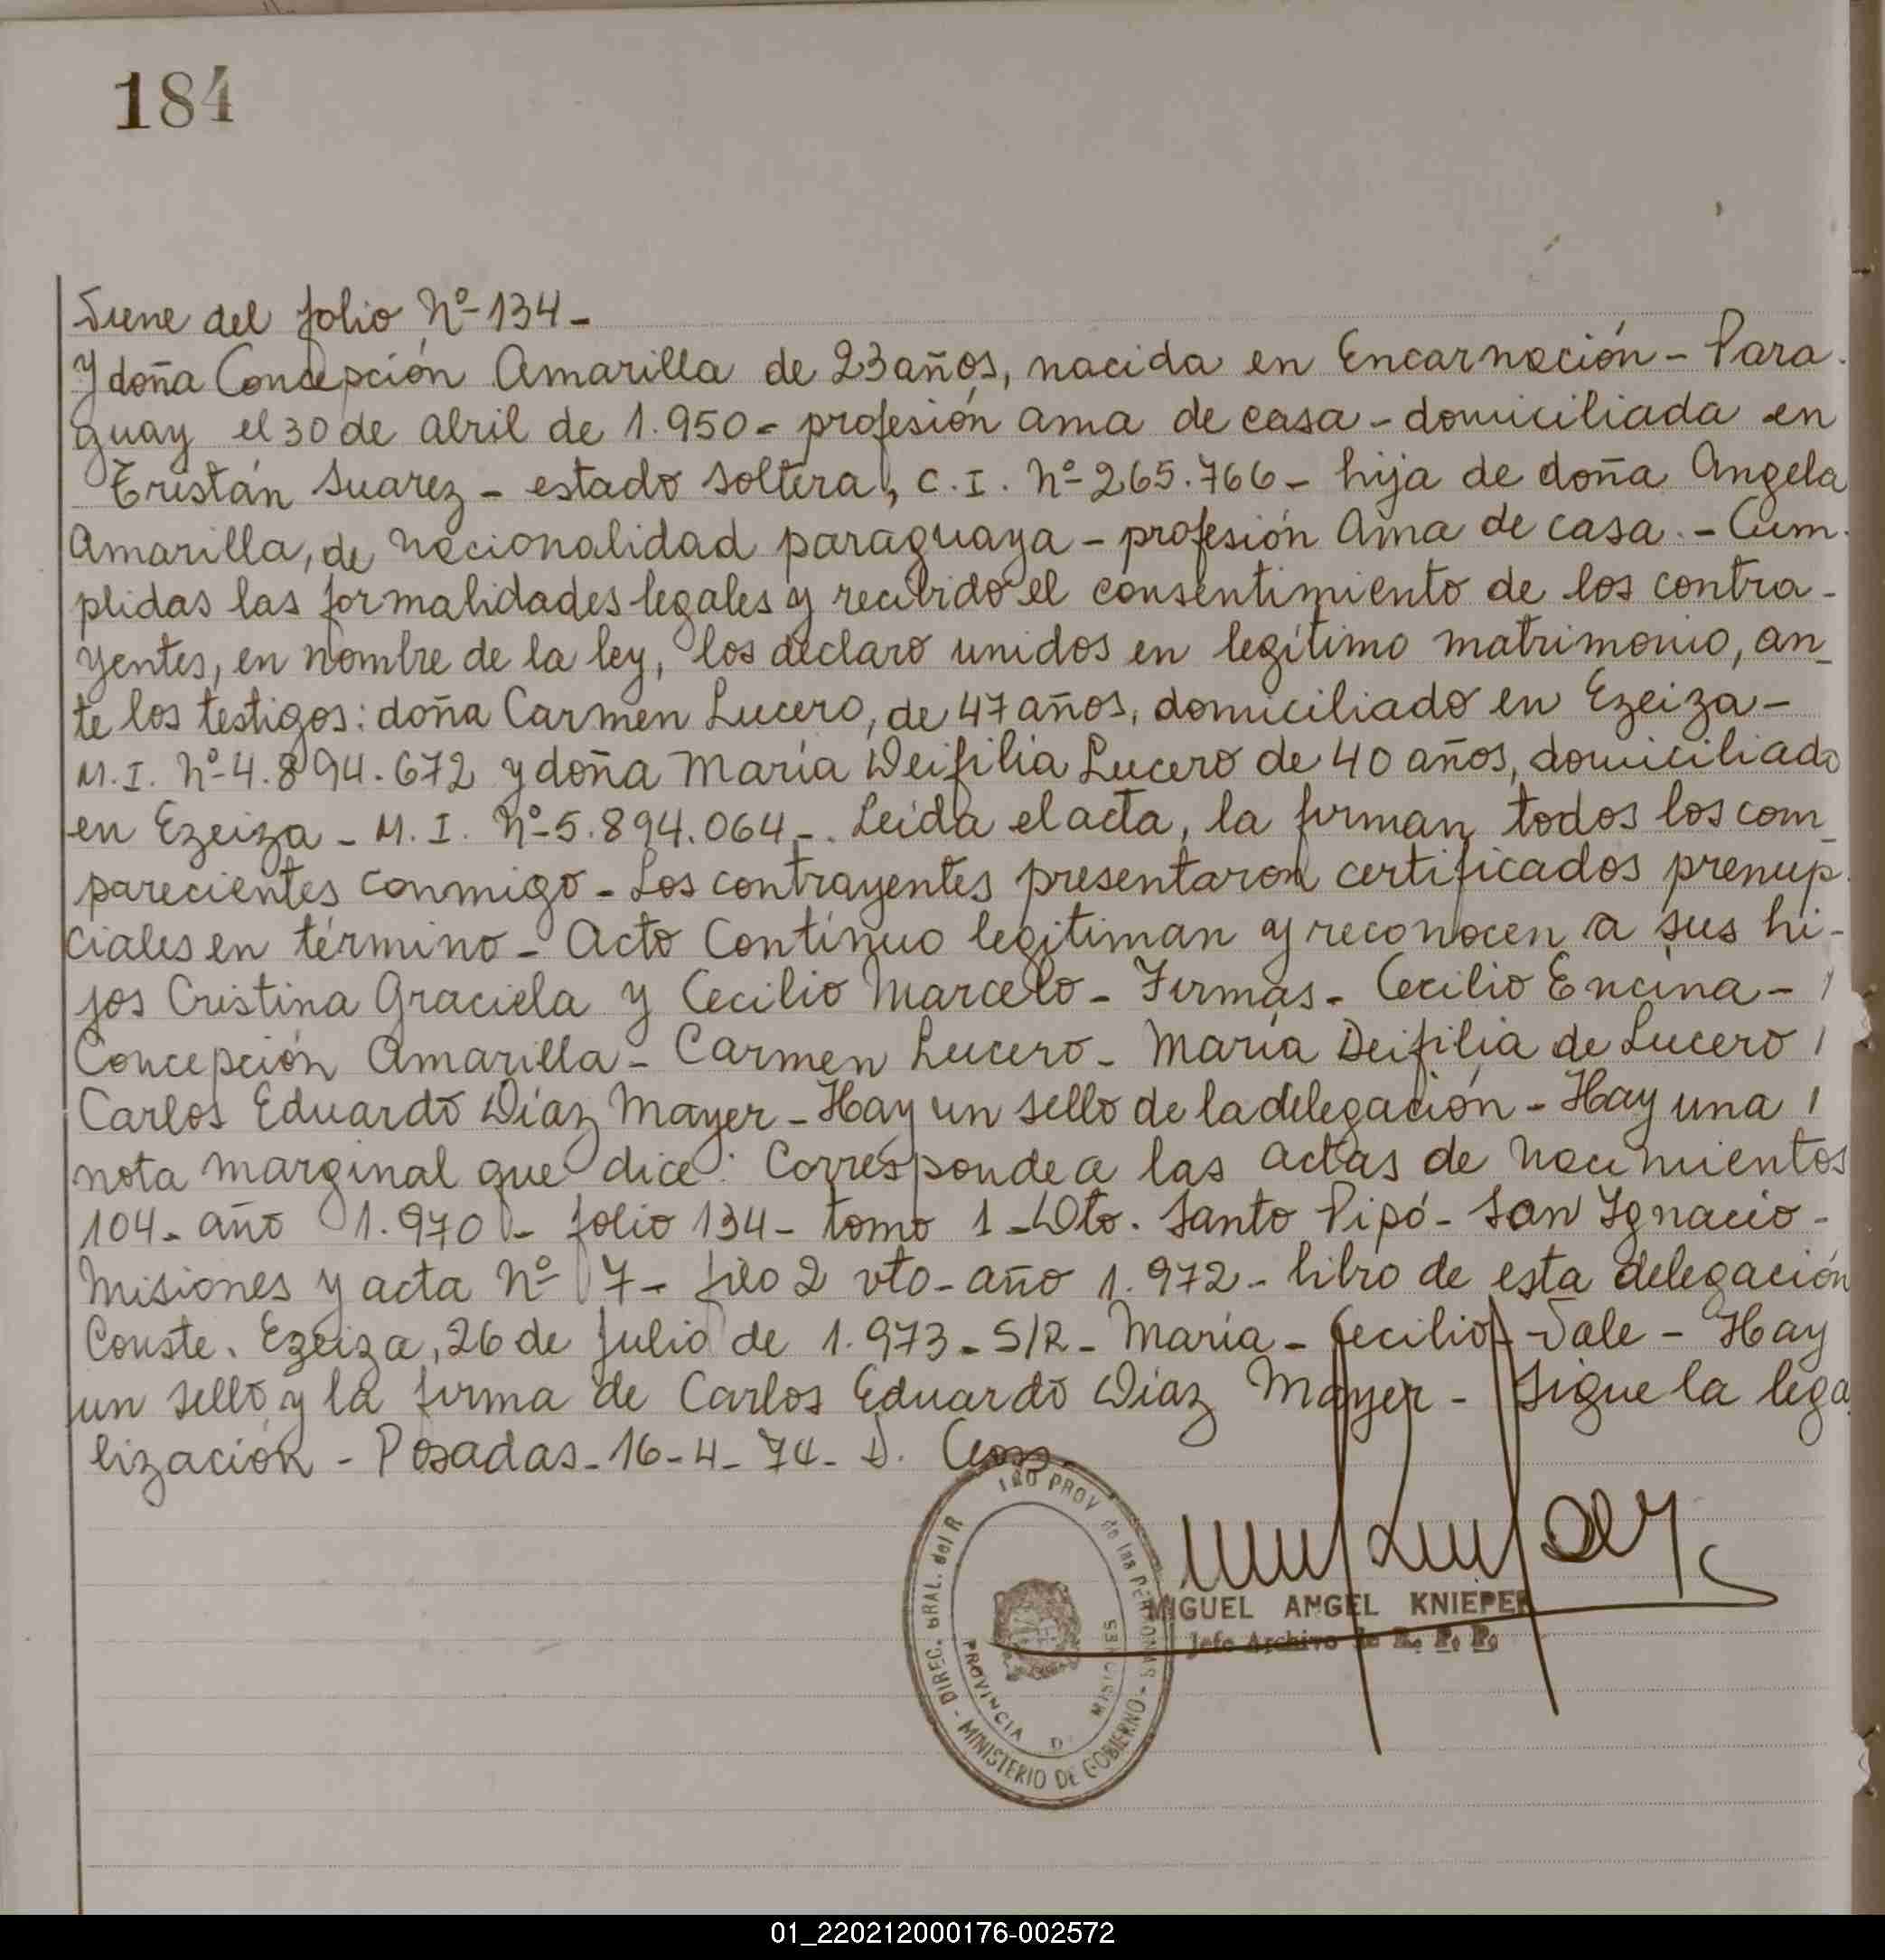 184
Viene del folio Nº 134-
Y doña Concepción Amarilla de 23 años, nacida en Encarnación - Para-
guay el 30 de abril de 1.950- profesión ama de casa - domiciliada en
Tristán Suarez - estado soltera, C.I. Nº 265.766- hija de doña Angela
Amarilla, de nacionalidad paraguaya - profesión Ama de casa.- Cum-
plidas las formalidades legales y recibido el consentimiento de los contra-
yentes, en nombre de la ley, los declaro unidos en legítimo matrimonio, an_
te los testigos: doña Carmen Lucero, de 47 años, domiciliado en Ezeiza-
M.I. Nº 4.894.672 y doña María Deifilia Lucero de 40 años, domiciliado
en Ezeiza - M.I. Nº 5.894.064-. Leida el acta, la firman todos los com_
parecientes conmigo - Los contrayentes presentaron certificados prenup-
ciales en término - Acto Continuo legitiman y reconocen a sus hi-
jos Cristina Graciela y Cecilio Marcelo - Firmas - Cecilio Encina - /
Concepción Amarilla - Carmen Lucero - María Deifilia de Lucero /
Carlos Eduardo Díaz Mayer - Hay un sello de la delegación - Hay una /
nota marginal que dice: Corresponde a las actas de nacimientos
104- año 1.970 - folio 134- tomo 1 - Dto. Santo Pipó - San Ignacio -
Misiones y acta Nº 7- folio 2 vto - año 1.972 - libro de esta delegación
Conste. Ezeiza, 26 de Julio de 1.973 - S/R - María - Cecilio - Vale - Hay
un sello y la firma de Carlos Eduardo Diaz Mayer - Sigue la lega
lización - Posadas - 16-4-74- D.
DIREC. GRAL. del R PROV. de las PERSONAS - MINISTERIO DE GOBIERNO -
PROVINCIA D MISIONES
MIGUEL ANGEL KNIEPER
Jefe Archivo de R. P. P.
01_220212000176-002572